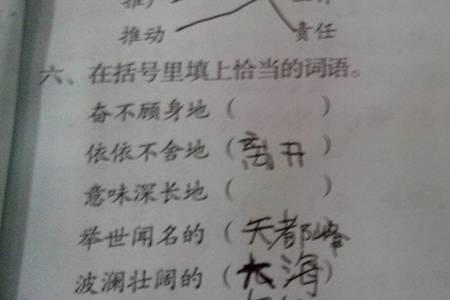 推动 责任
六、在括号里填上恰当的词语。
奋不顾身地( )
依依不舍地(离开)
意味深长地( )
举世闻名的(天都峰
波澜壮阔的(大海)